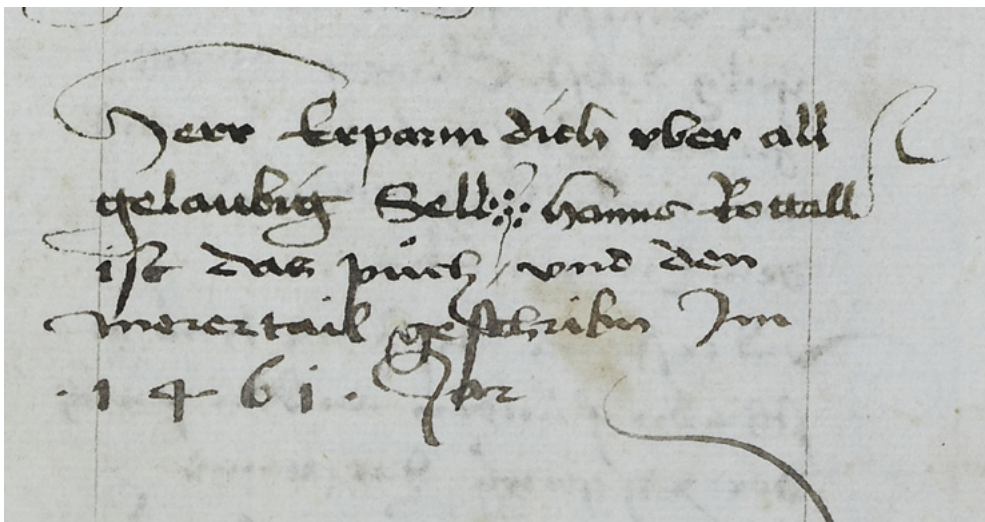 Herr Erparm dich vber all
gelaubig Sell Hanns Rottall
ist das puech vnd den
merertail geschribn Im
· 1 4 6 1 · Jar